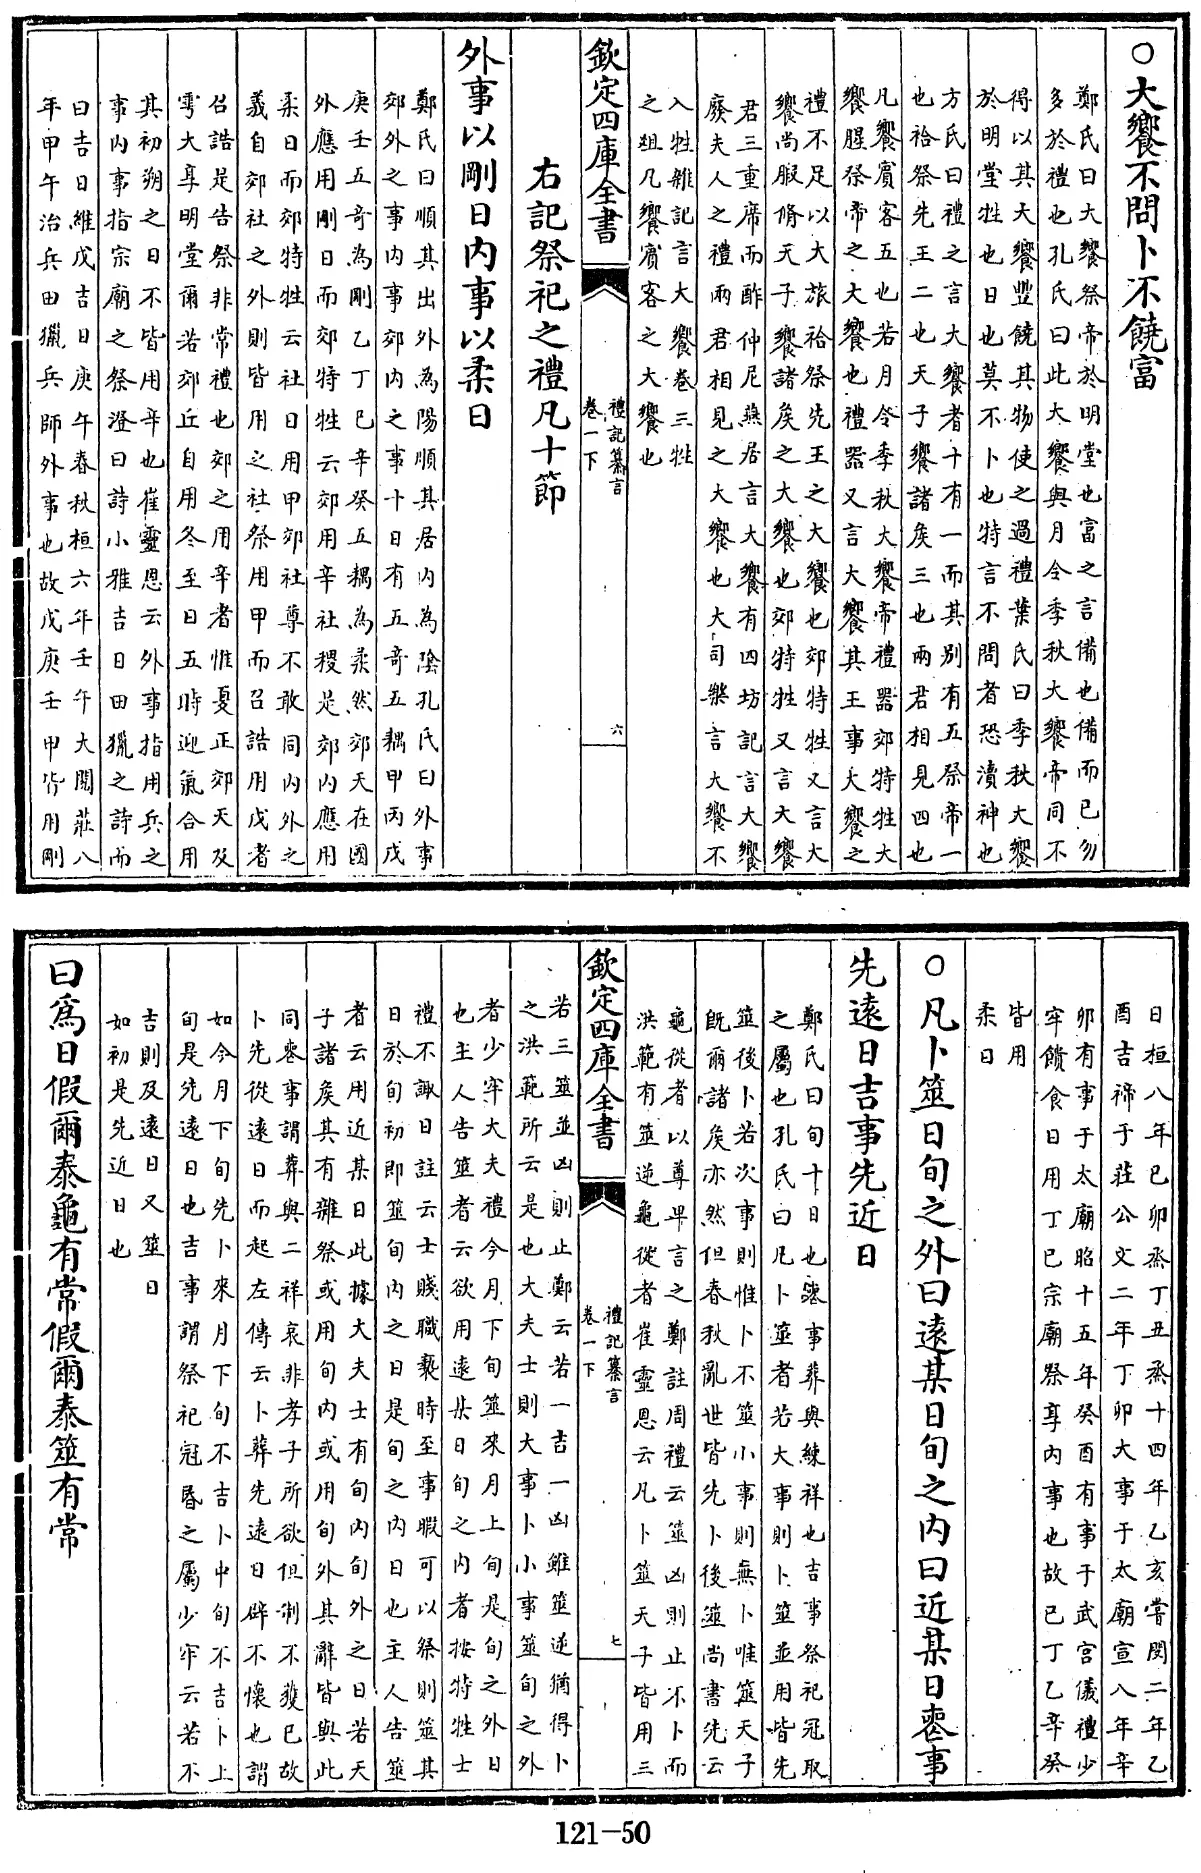 ○大饗不問卜不饒富
鄭氏曰大饗祭帝於明堂也富之言備也備而已勿
多於禮也孔氏曰此大饗與月令季秋大饗帝同不
得以其大饗豐饒其物使之過禮葉氏曰季秋大饗
於明堂牲也日也莫不卜也特言不問者恐瀆神也
方氏曰禮之言大饗者十有一而其別有五祭帝一
也祫祭先王二也天子饗諸侯三也兩君相見四也
凡饗賓客五也若月令季秋大饗帝禮器郊特牲大
饗腥祭帝之大饗也禮器又言大饗其王事大饗之
禮不足以大旅祫祭先王之大饗也郊特牲又言大
饗尚腶脩天子饗諸侯之大饗也郊特牲又言大饗
君三重席而酢仲尼燕居言大饗有四坊記言大饗
廢夫人之禮兩君相見之大饗也大司樂言大饗不
入牲雜記言大饗卷三牲
之俎凡饗賓客之大饗也
欽定四庫全書
禮記纂言
卷一下
六
右記祭祀之禮凡十節
外事以剛日內事以柔日
鄭氏曰順其出外為陽順其居內為陰孔氏曰外事
郊外之事內事郊內之事十日有五奇五耦甲丙戊
庚壬五奇為剛乙丁己辛癸五耦為柔然郊天在國
外應用剛日而郊特牲云郊用辛社稷是郊內應用
柔日而郊特牲云社日用甲郊社尊不敢同內外之
義自郊社之外則皆用之社祭用甲而召誥用戊者
召誥是告祭非常禮也郊之用辛者惟夏正郊天及
雩大享明堂爾若郊丘自用冬至日五時迎氣合用
其初朔之日不皆用辛也崔靈恩云外事指用兵之
事內事指宗廟之祭澄曰詩小雅吉日田獵之詩而
曰吉日維戊吉日庚午春秋桓六年壬午大閱莊八
年甲午治兵田獵兵師外事也故戊庚壬甲皆用剛
日桓八年己卯烝丁丑烝十四年乙亥嘗閔二年乙
酉吉禘于莊公文二年丁卯大事于太廟宣八年辛
卯有事于太廟昭十五年癸酉有事于武宮儀禮少
牢饋食日用丁巳宗廟祭享內事也故己丁乙辛癸
皆用
柔日
○凡卜筮日旬之外曰遠某日旬之內曰近某日喪事
先遠日吉事先近日
鄭氏曰旬十日也喪事葬與練祥也吉事祭祀冠取
之屬也孔氏曰凡卜筮者若大事則卜筮並用皆先
筮後卜若次事則惟卜不筮小事則無卜唯筮天子
旣爾諸侯亦然但春秋亂世皆先卜後筮尚書先云
龜從者以尊卑言之鄭註周禮云筮凶則止不卜而
洪範有筮逆龜從者崔靈恩云凡卜筮天子皆用三
欽定四庫全書
禮記纂言
卷一下
七
若三筮並凶則止鄭云若一吉一凶雖筮逆猶得卜
之洪範所云是也大夫士則大事卜小事筮旬之外
者少牢大夫禮今月下旬筮來月上旬是旬之外日
也主人告筮者云欲用遠某日旬之內者按特牲士
禮不諏日註云士賤職褻時至事暇可以祭則筮其
日於旬初即筮旬內之日是旬之內日也主人告筮
者云用近某日此據大夫士有旬內旬外之日若天
子諸侯其有雜祭或用旬內或用旬外其辭皆與此
同喪事謂葬與二祥哀非孝子所欲但制不獲已故
卜先從遠日而起左傳云卜葬先遠日辟不懷也謂
如今月下旬先卜來月下旬不吉卜中旬不吉卜上
旬是先遠日也吉事謂祭祀冠昏之屬少牢云若不
吉則及遠日又筮日
如初是先近日也
曰爲日假爾泰龜有常假爾泰筮有常
121-50